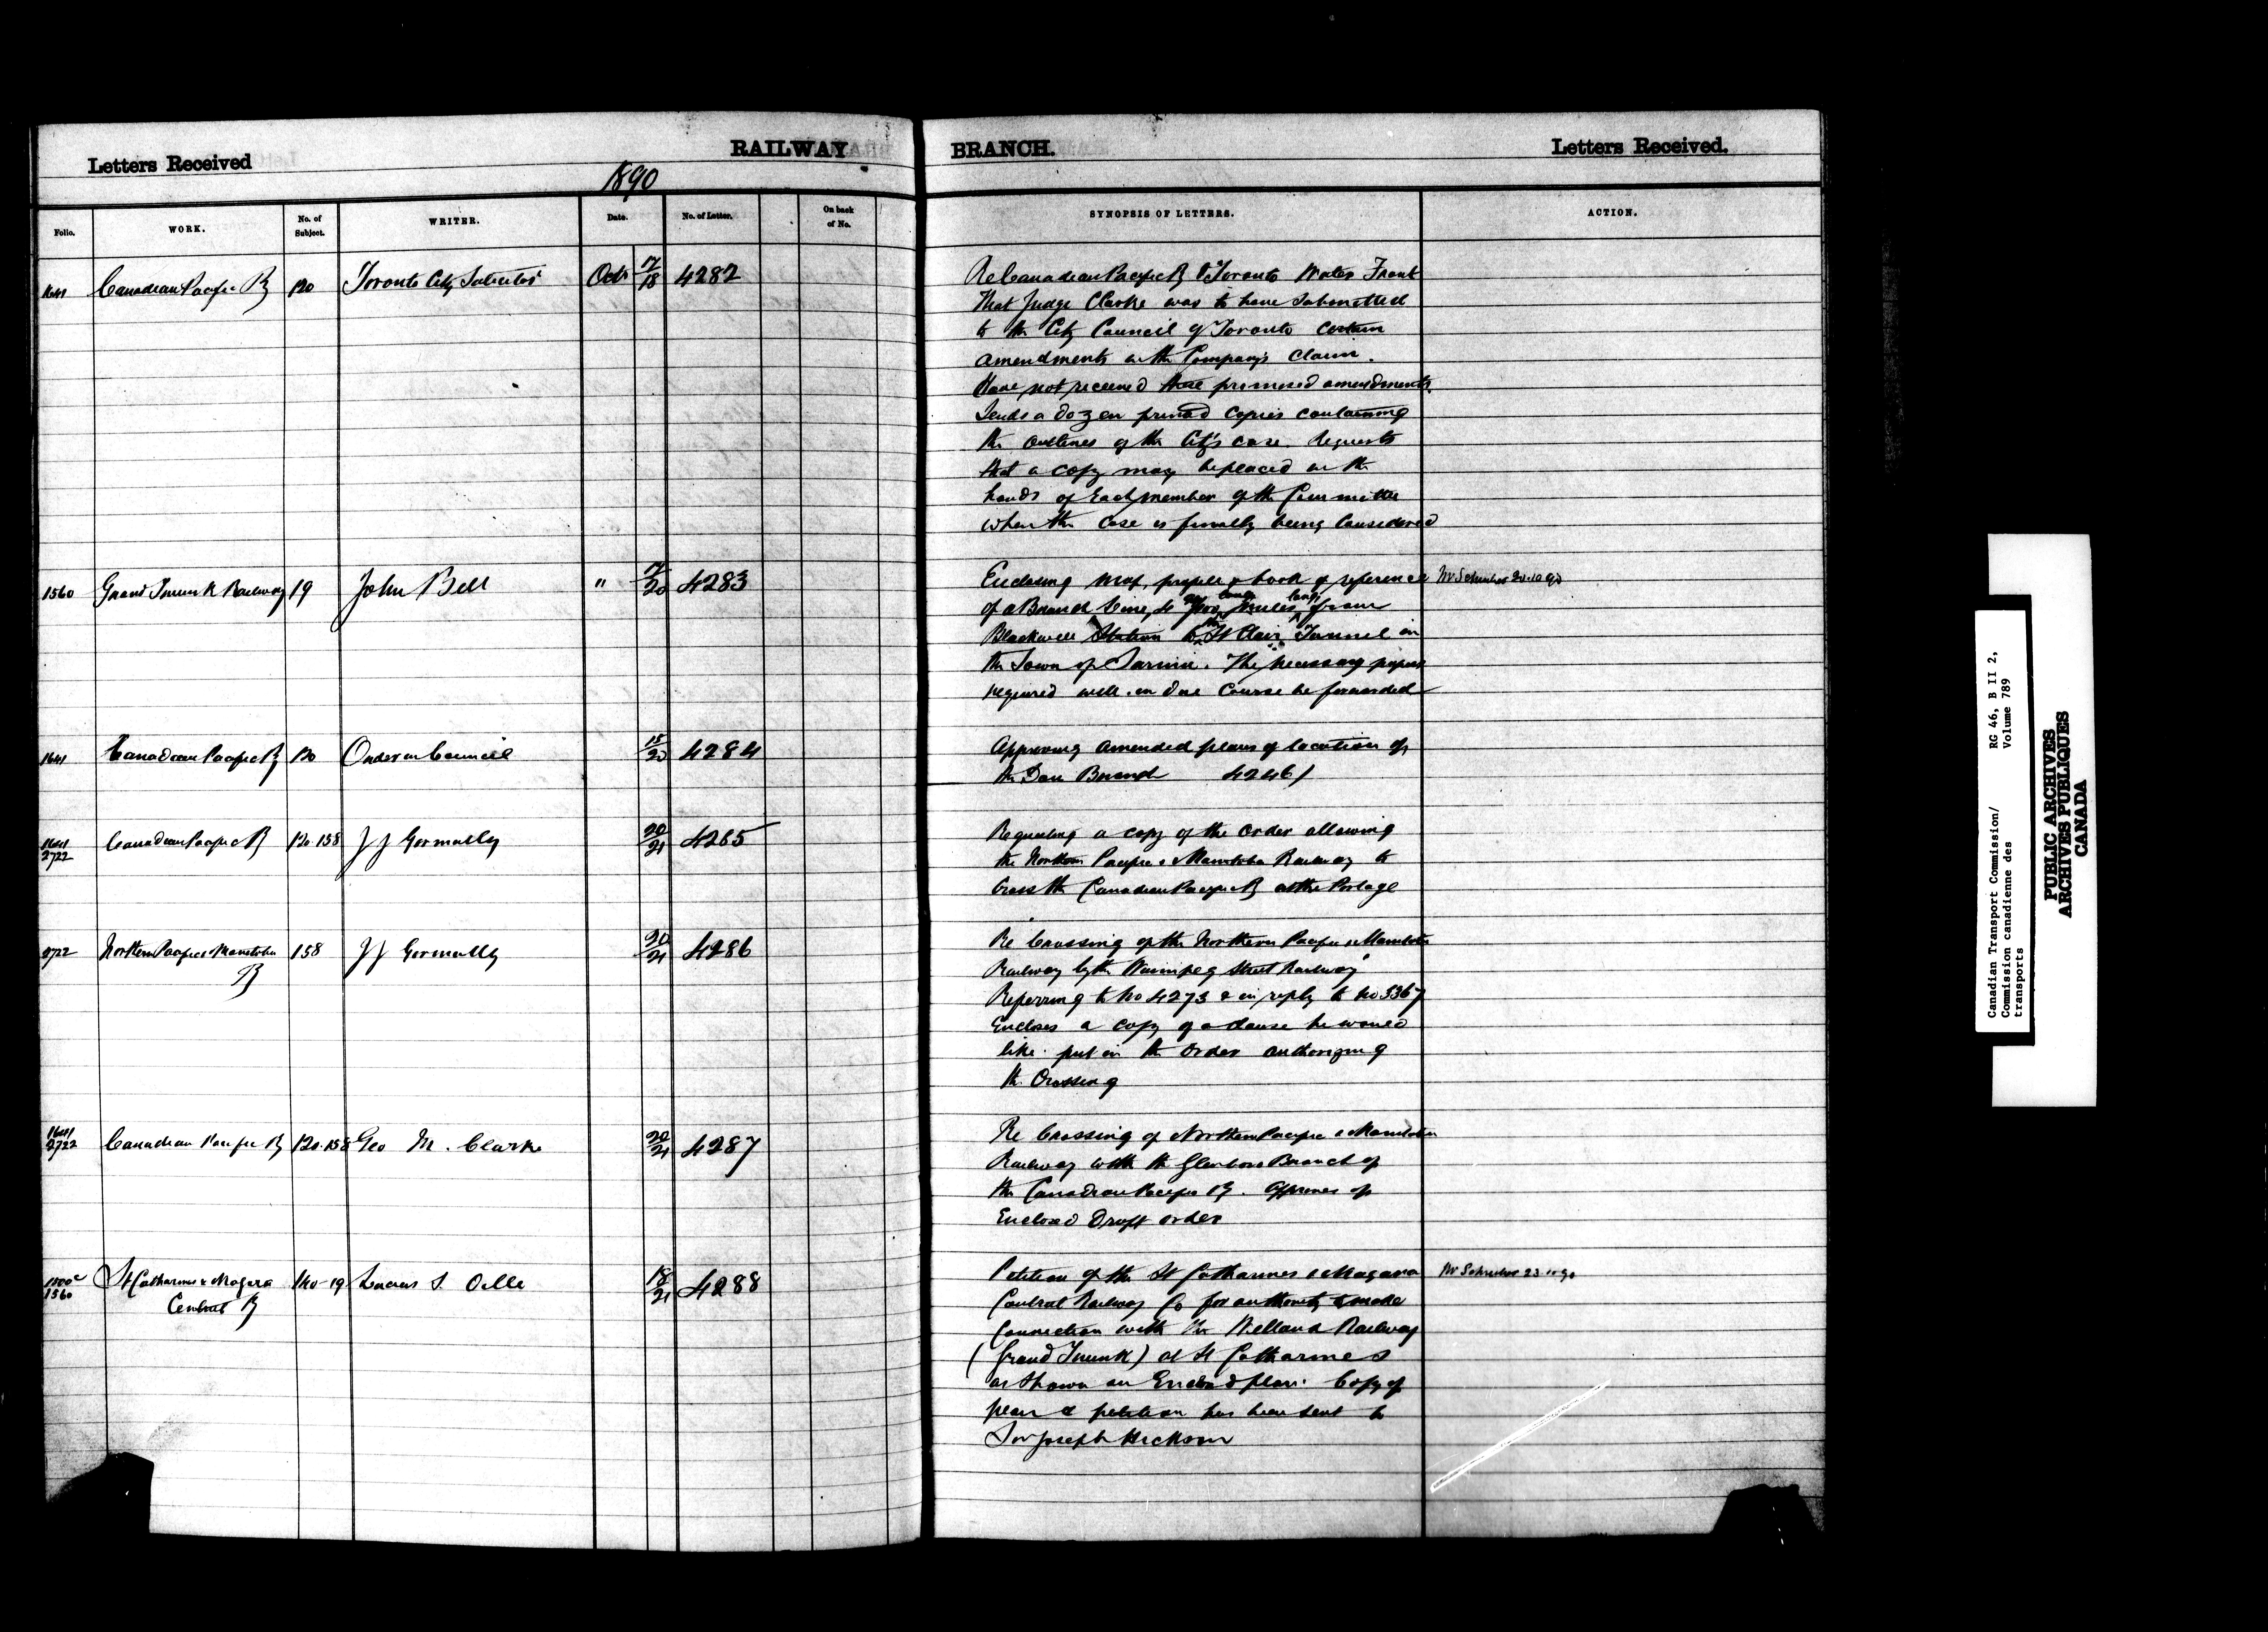 Letters Received
RAILWAY
BRANCH.
Letters Received.
1890
Folio.
WORK.
No. of
Subject.
WRITER.
Date.
No. of Letter.
On back
of No.
SYNOPSIS OF LETTERS.
ACTION.
1641 Canadian Pacific Ry 120 Toronto City Solicitor Octr 17/18 4282
Re Canadian Pacific Ry & Toronto Water Front
That Judge Clarke was to have submitted
to the City Council of Toronto certain
amendments in the Company's claim.
Have not received these promised amendments.
Sends a dozen printed copies containing
the outlines of the City's case. Requests
that a copy may be placed in the
hands of each member of the Committee
when the case is finally being considered
1560 Grand Trunk Railway 19 John Bell " 17/20 4283
Enclosing map, profile & book of reference
of a Branch line, 4 miles long from
Blackwell Station to the St Clair Tunnel in
the Town of Sarnia. The necessary papers
required will in due course be forwarded
Mr Schreiber 20.10.90
1641 Canadian Pacific Ry 120 Order in Council 15/20 4284
Approving amended plans of location of
the Don Branch 4246/
1641
2722 Canadian Pacific Ry 120.158 J J Gormully 20/21 4285
Requesting a copy of the order allowing
the Northern Pacific & Manitoba Railway to
Cross the Canadian Pacific Ry at the Portage
2722 Northern Pacific & Manitoba
Ry 158 J J Gormully 20/21 4286
Re Crossing of the Northern Pacific & Manitoba
Railway by the Winnipeg Street Railway
Referring to No 4273 & in reply to No 3367
Encloses a copy of a clause he would
like put in the Order authorizing
the Crossing
1641
2722 Canadian Pacific Ry 120.158 Geo M. Clarke 20/21 4287
Re Crossing of Northern Pacific & Manitoba
Railway with the Glenboro Branch of
the Canadian Pacific Ry. Approves of
Enclosed Draft order
1560 St Catharines & Niagara
Central Ry 140-19 Lucius S. Oille 18/21 4288
Petition of the St Catharines & Niagara
Central Railway Co for authority to make
Connection with the Welland Railway
(Grand Trunk) at St Catharines
as shown on Enclosed plan. Copy of
plan & petition has been sent to
Sir Joseph Hickson
Mr Schreiber 23.10.90
Canadian Transport Commission/ RG 46, B II 2,
Commission canadienne des Volume 789
transports
PUBLIC ARCHIVES
ARCHIVES PUBLIQUES
CANADA